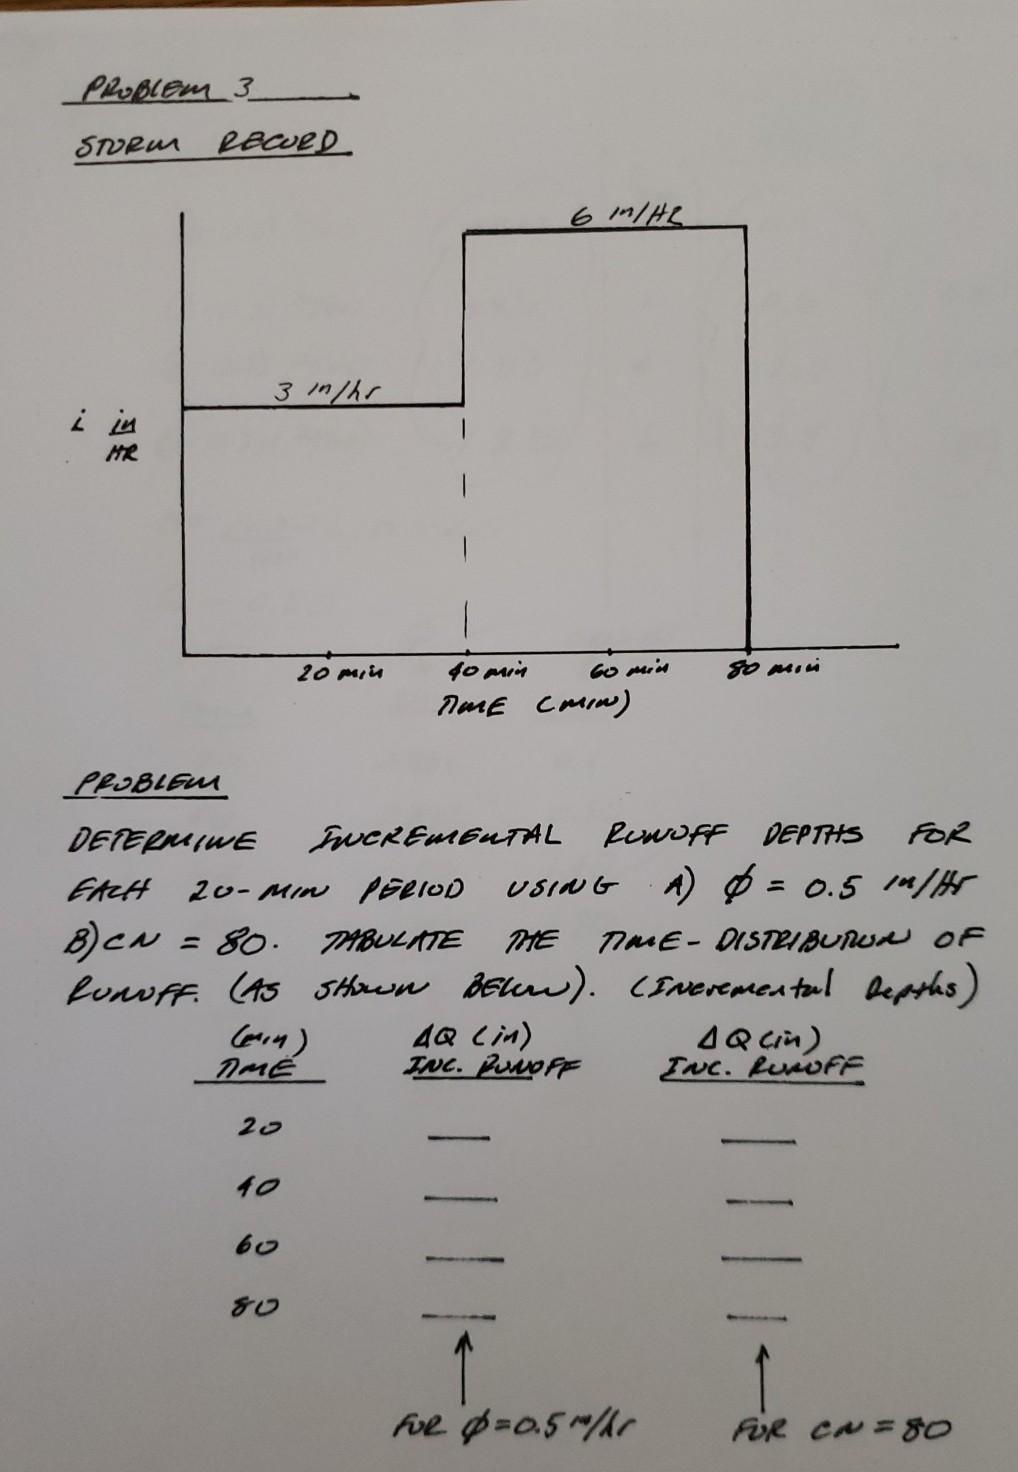 PROBLEM 3
STORM RECORD
6 in/HR
3 in/hr
i in
HR
20 min 40 min 60 min 80 min
TIME (MIN)
PROBLEM
DETERMINE INCREMENTAL RUNOFF DEPTHS FOR
EACH 20-MIN PERIOD USING A) φ = 0.5 in/Hr
B) CN = 80. TABULATE THE TIME-DISTRIBUTION OF
RUNOFF. (AS SHOWN BELOW). (Incremental Depths)
(min) ΔQ (in) ΔQ (in)
TIME INC. RUNOFF INC. RUNOFF
20
40
60
80
FOR φ = 0.5 in/hr FOR CN = 80